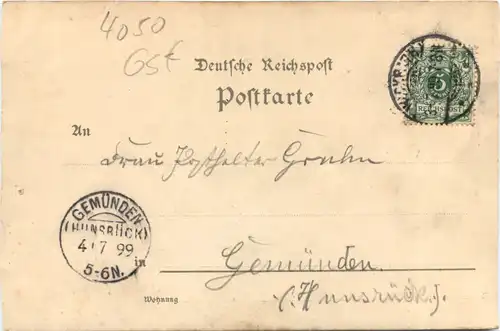 4050
GSt
Deutsche Reichspost
Postkarte
5
REICHSPOST
An
Frau Posthalter Gruhn
GEMÜNDEN
(HUNSRÜCK)
4 7 99
5-6N.
in
Gemünden.
(Hunsrück).
Wohnung